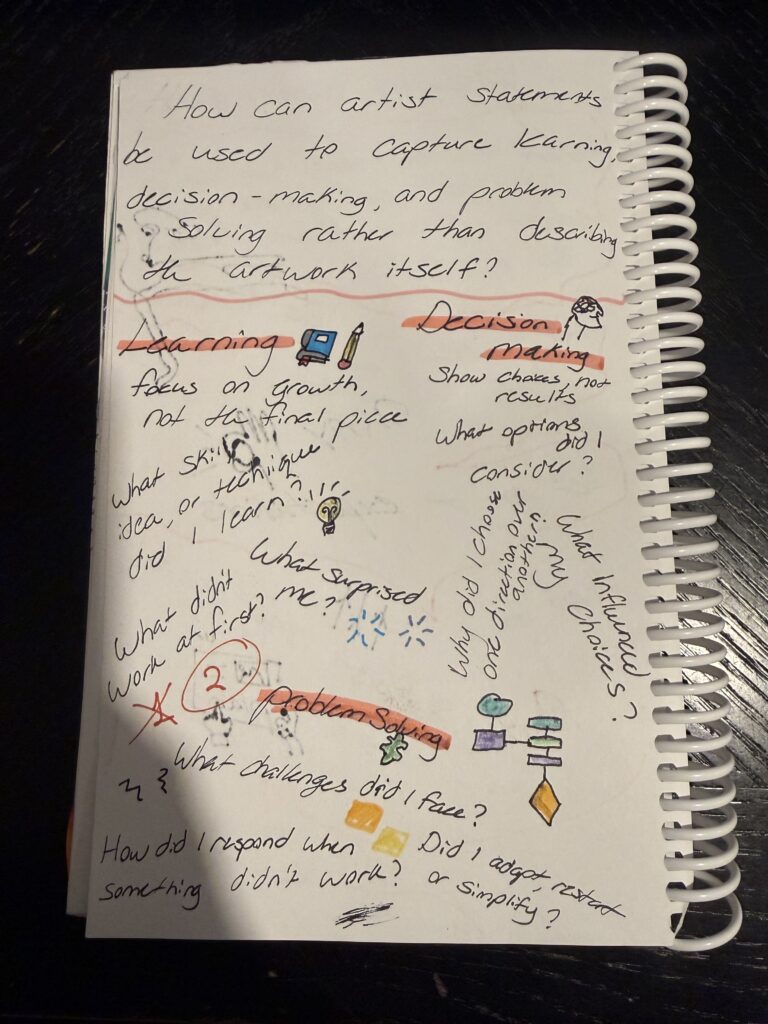 How can artist statements
be used to capture learning,
decision-making, and problem
solving rather than describing
the artwork itself?
Learning
focus on growth,
not the final piece
What skill,
idea, or technique
did I learn?
What surprised
me?
What didn't
work at first?
Decision
Making
Show choices, not
results
What options did I
consider?
Why did I choose
one direction over
another?
What influenced
my
choices?
2
problem solving
What challenges did I face?
How did I respond when
something didn't work?
Did I adapt, restart
or simplify?